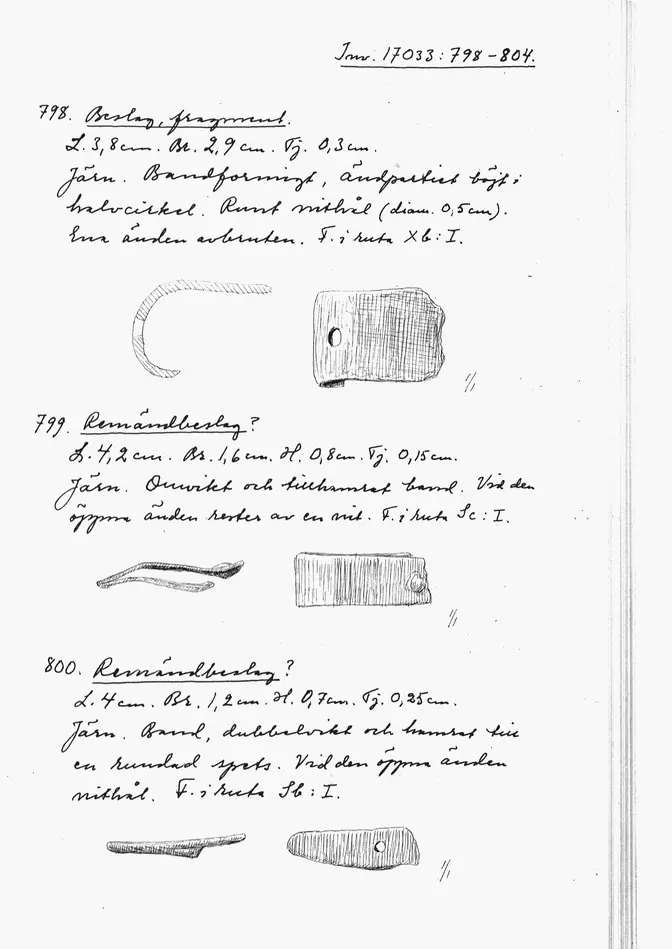 Inv. 17033:798-804.
798. Beslag, fragment.
L. 3,8 cm. Br. 2,9 cm. Tj. 0,3 cm.
Järn. Bandformigt, ändpartiet böjt i
halvcirkel. Runt nithål (diam. 0,5 cm).
Ena änden avbruten. F. i ruta Xb: I.
1/1
799. Remändbeslag?
L. 4,2 cm. Br. 1,6 cm. H. 0,8 cm. Tj. 0,15 cm.
Järn. Omvikt och tillhamrat band. Vid den
öppna änden rester av en nit. F. i ruta Sc: I.
1/1
800. Remändbeslag?
L. 4 cm. Br. 1,2 cm. H. 0,7 cm. Tj. 0,25 cm.
Järn. Band, dubbelvikt och hamrat till
en rundad spets. Vid den öppna änden
nithål. F. i ruta Sb: I.
1/1